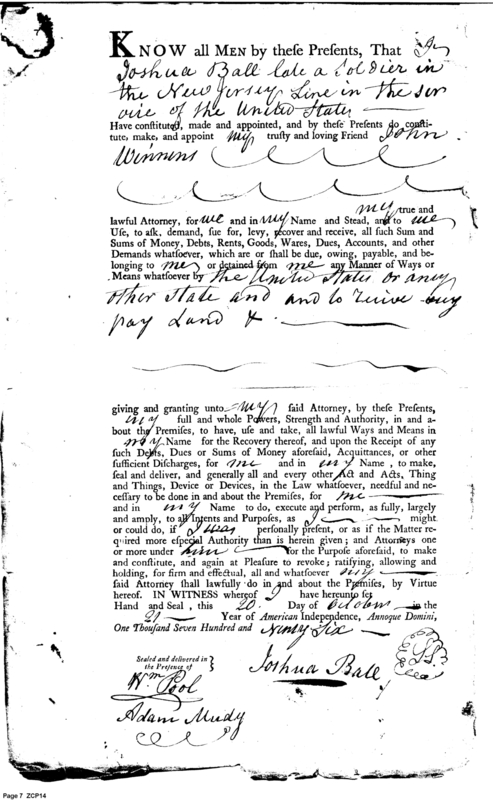 KNOW all MEN by theſe Preſents, That I
Joshua Ball late a Soldier in
the New Jersey Line in the ser
vice of the United States
Have conſtituted, made and appointed, and by theſe Preſents do conſti-
tute, make, and appoint my truſty and loving Friend John
Winnens
my true and
lawful Attorney, for me and in my Name and Stead, and to me
Uſe, to aſk, demand, ſue for, levy, recover and receive, all ſuch Sum and
Sums of Money, Debts, Rents, Goods, Wares, Dues, Accounts, and other
Demands whatſoever, which are or ſhall be due, owing, payable, and be-
longing to me or detained from me any Manner of Ways or
Means whatſoever by the United States or any
other State and and to receive my
pay Land &
giving and granting unto my ſaid Attorney, by theſe Preſents,
my full and whole Powers, Strength and Authority, in and a-
bout the Premiſes, to have, uſe and take, all lawful Ways and Means in
my Name for the Recovery thereof, and upon the Receipt of any
ſuch Debts, Dues or Sums of Money aforeſaid, Acquittances, or other
ſufficient Diſcharges, for me and in my Name, to make,
ſeal and deliver, and generally all and every other Act and Acts, Thing
and Things, Device or Devices, in the Law whatſoever, needful and ne-
ceſſary to be done in and about the Premiſes, for me
and in my Name to do, execute and perform, as fully, largely
and amply, to all Intents and Purpoſes, as I might
or could do, if I was perſonally preſent, or as if the Matter re-
quired more eſpecial Authority than is herein given; and Attorneys one
or more under him for the Purpoſe aforeſaid, to make
and conſtitute, and again at Pleaſure to revoke; ratifying, allowing and
holding, for firm and effectual, all and whatſoever my
ſaid Attorney ſhall lawfully do in and about the Premiſes, by Virtue
hereof. IN WITNESS whereof I have hereunto ſet
Hand and Seal, this 20 Day of October in the
21 Year of American Independence, Annoque Domini,
One Thouſand Seven Hundred and Ninty Six
Sealed and delivered in
the Preſence of
Joshua Ball
LS
Wm Pool
Adam Mudy
Page 7 ZCP14